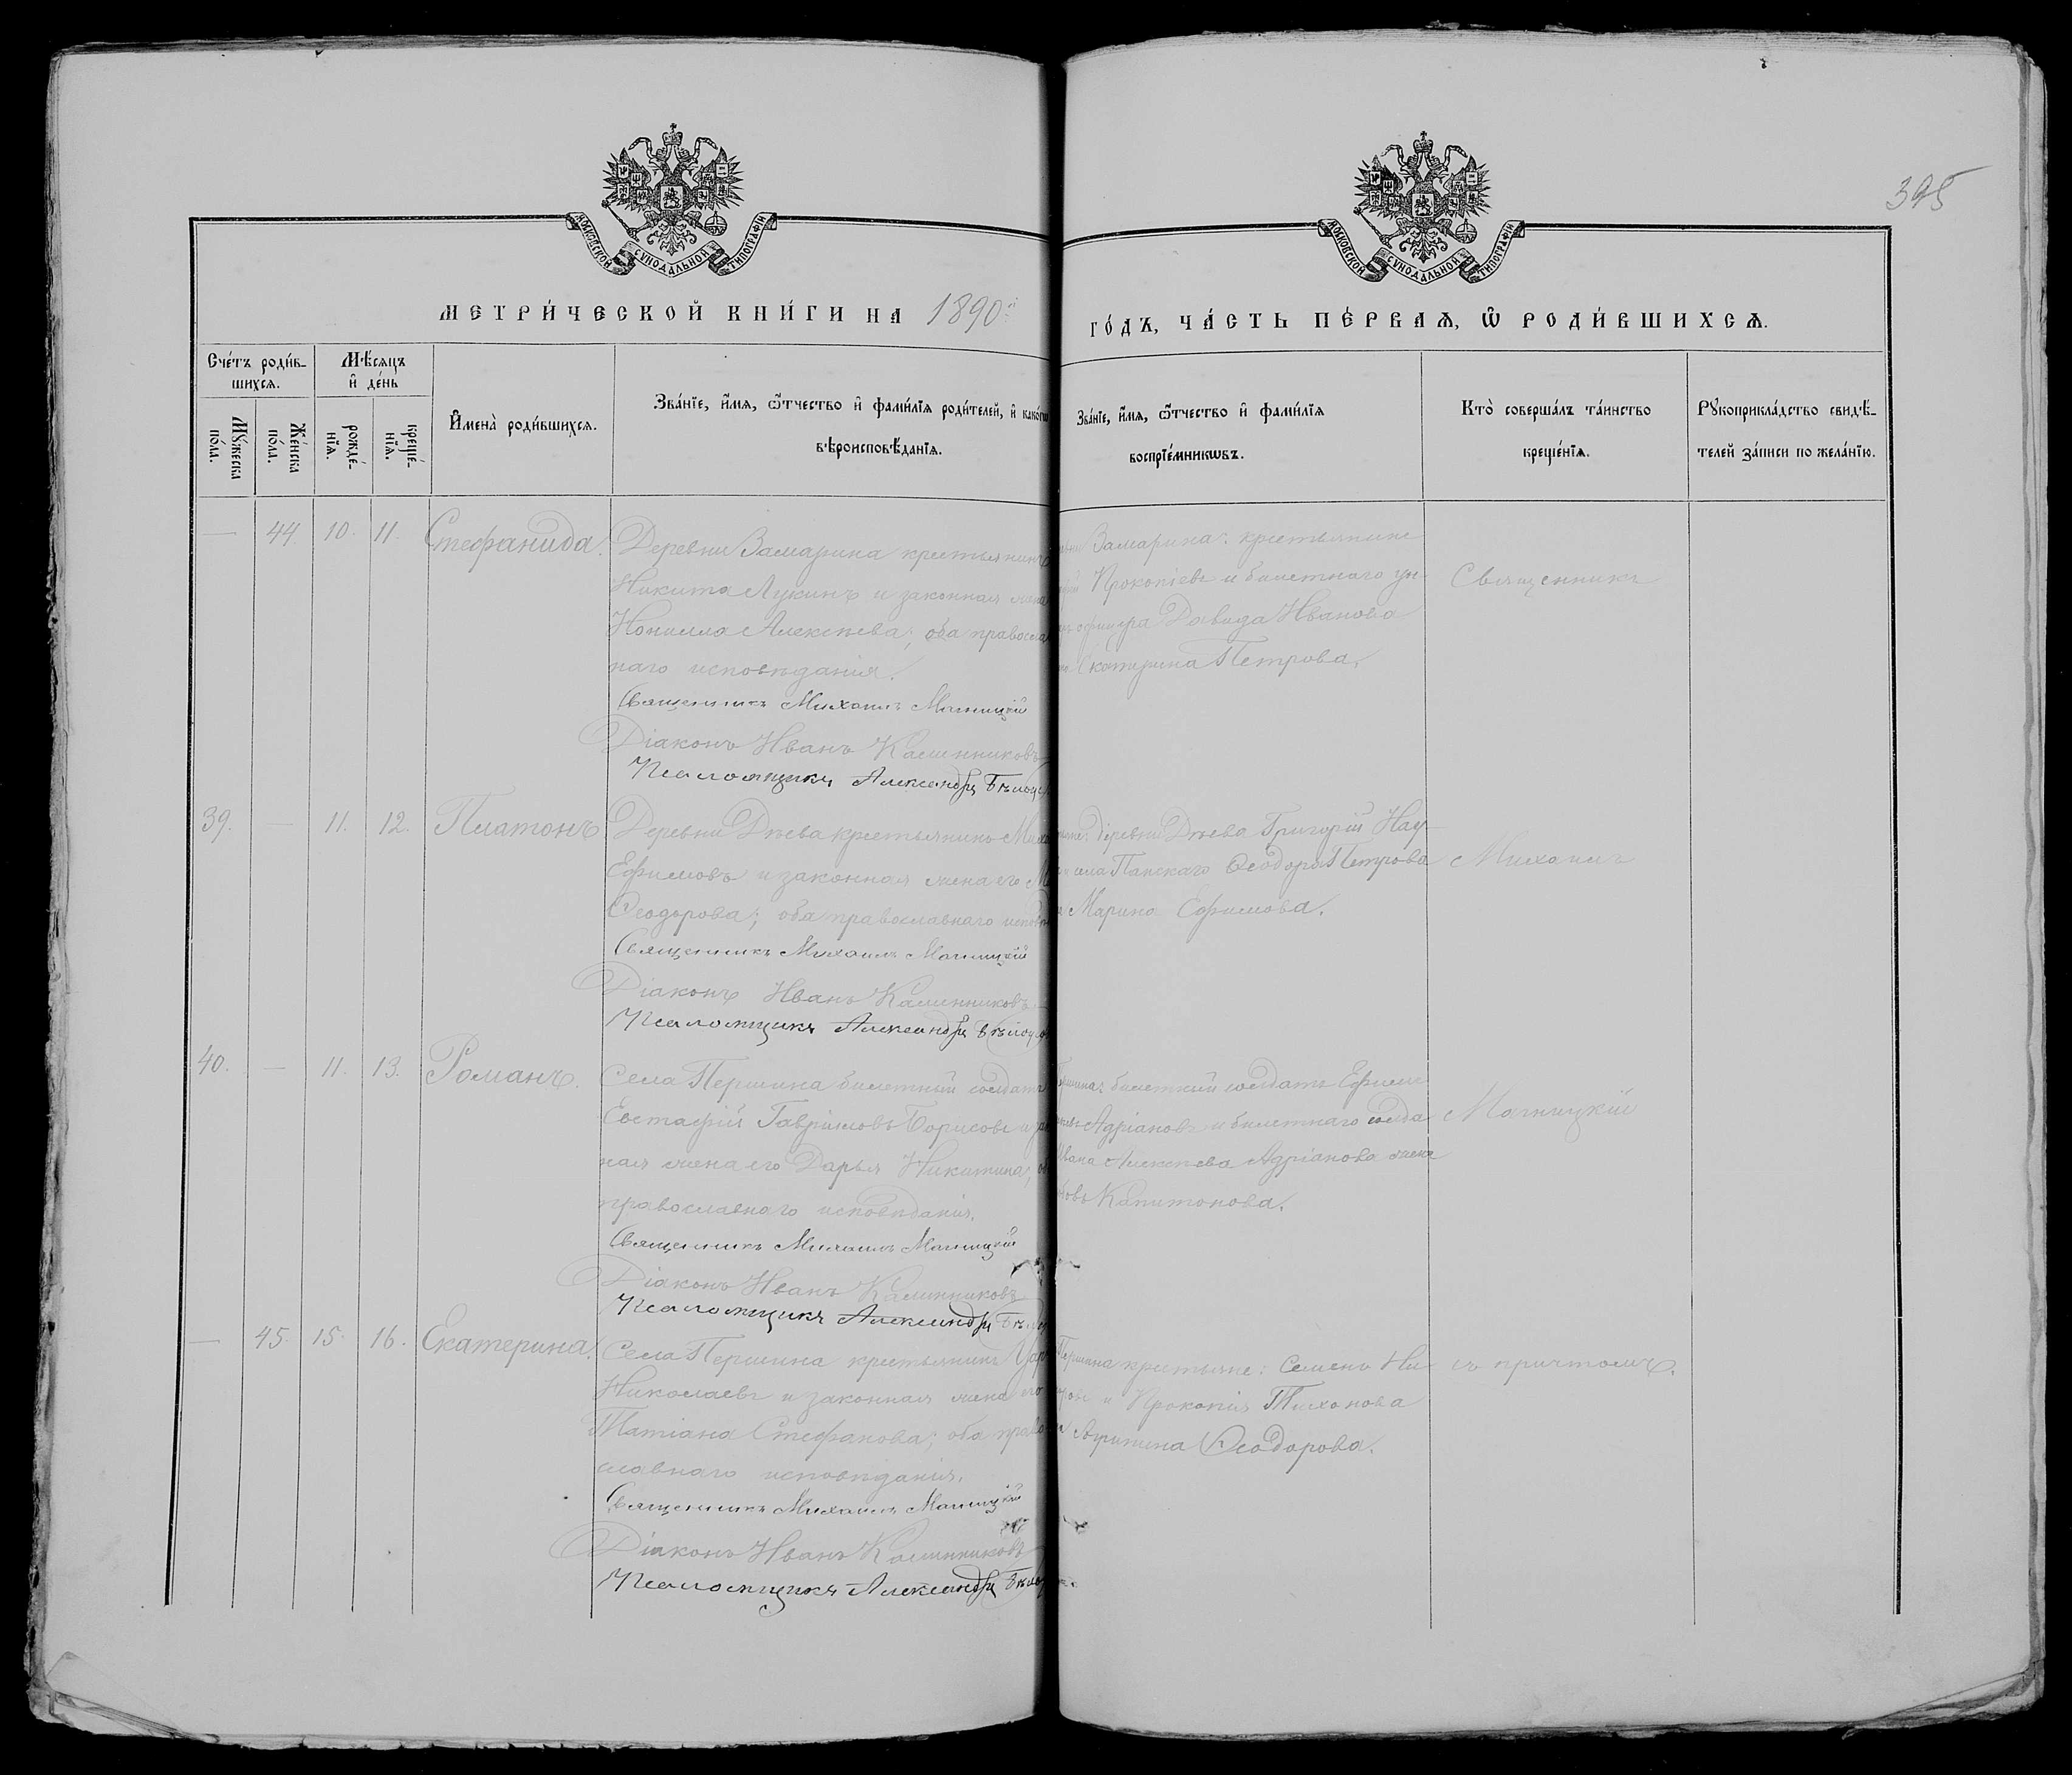 395
МОСКОВСКОЙ СѴНОДАЛЬНОЙ ТИПОГРАФІИ
МОСКОВСКОЙ СѴНОДАЛЬНОЙ ТИПОГРАФІИ
МЕТРИ́ЧЕСКОЙ КНИ́ГИ НА 1890й
ГО́ДЪ, ЧА́СТЬ ПЕ́РВАѦ, Ѿ РОДИ́ВШИХСѦ.
Сче́тъ роди́в-
шихсѧ.
Мѣ́сѧцъ
и҆ де́нь
Мꙋ́жеска
по́ла.
Же́нска
по́ла.
рожде́-
нїѧ.
креще́-
нїѧ.
И҆мена̀ роди́вшихсѧ.
Зва́нїе, и҆́мѧ, ѻ҆́тчество и҆ фами́лїѧ роди́телей, и҆
вѣроисповѣ́данїѧ.
Зва́нїе, и҆́мѧ, ѻ҆́тчество и҆ фами́лїѧ
воспрїе́мникѡвъ.
Кто̀ соверша́лъ та́инство
креще́нїѧ.
Рꙋкоприкла́дство свидѣ́-
телей за́писи по жела́нїю.
— 44. 10. 11. Стефанида.
Деревни Замарина крестьянинъ
Никита Лукинъ и законная жена
Алексѣева; оба православ
наго исповѣданія.
Священникъ Михаилъ Магницкій
Діаконъ Иванъ Калинниковъ
Псаломщикъ Александръ
Замарина: крестьянинъ
Прокопіевъ и билетнаго ун-
офицера Давида Иванова
Екатерина Петрова.
Священникъ
39. — 11. 12. Платонъ
Деревни Дѣева крестьянинъ
Ефимовъ и законная жена его
Ѳеодорова; оба православнаго
Священникъ Михаилъ Магницкій
Діаконъ Иванъ Калинниковъ
Псаломщикъ Александръ
деревни Дѣева Григорій Нау-
села Панскаго Ѳеодора Петрова
Марина Ефимова.
Михаилъ
40. — 11. 13. Романъ.
Села Першина билетный солдатъ
Евстафій Гавріиловъ Борисовъ и
ная жена его Дарья Никитина,
православнаго исповѣданія.
Священникъ Михаилъ Магницкій
Діаконъ Иванъ Калинниковъ
Псаломщикъ Александръ
билетный солдатъ Ефимъ
Адріановъ и билетнаго солда-
Ивана Алексѣева Адріанова жена
Капитонова.
Магницкій
— 45. 15. 16. Екатерина.
Села Першина крестьянинъ
Николаевъ и законная жена его
Татіана Стефанова; оба право-
славнаго исповѣданія.
Священникъ Михаилъ Магницкій
Діаконъ Иванъ Калинниковъ
Псаломщикъ Александръ
Першина крестьяне: Семенъ Ни-
и Прокопія Тихонова
Ѳеодорова.
съ причтомъ.